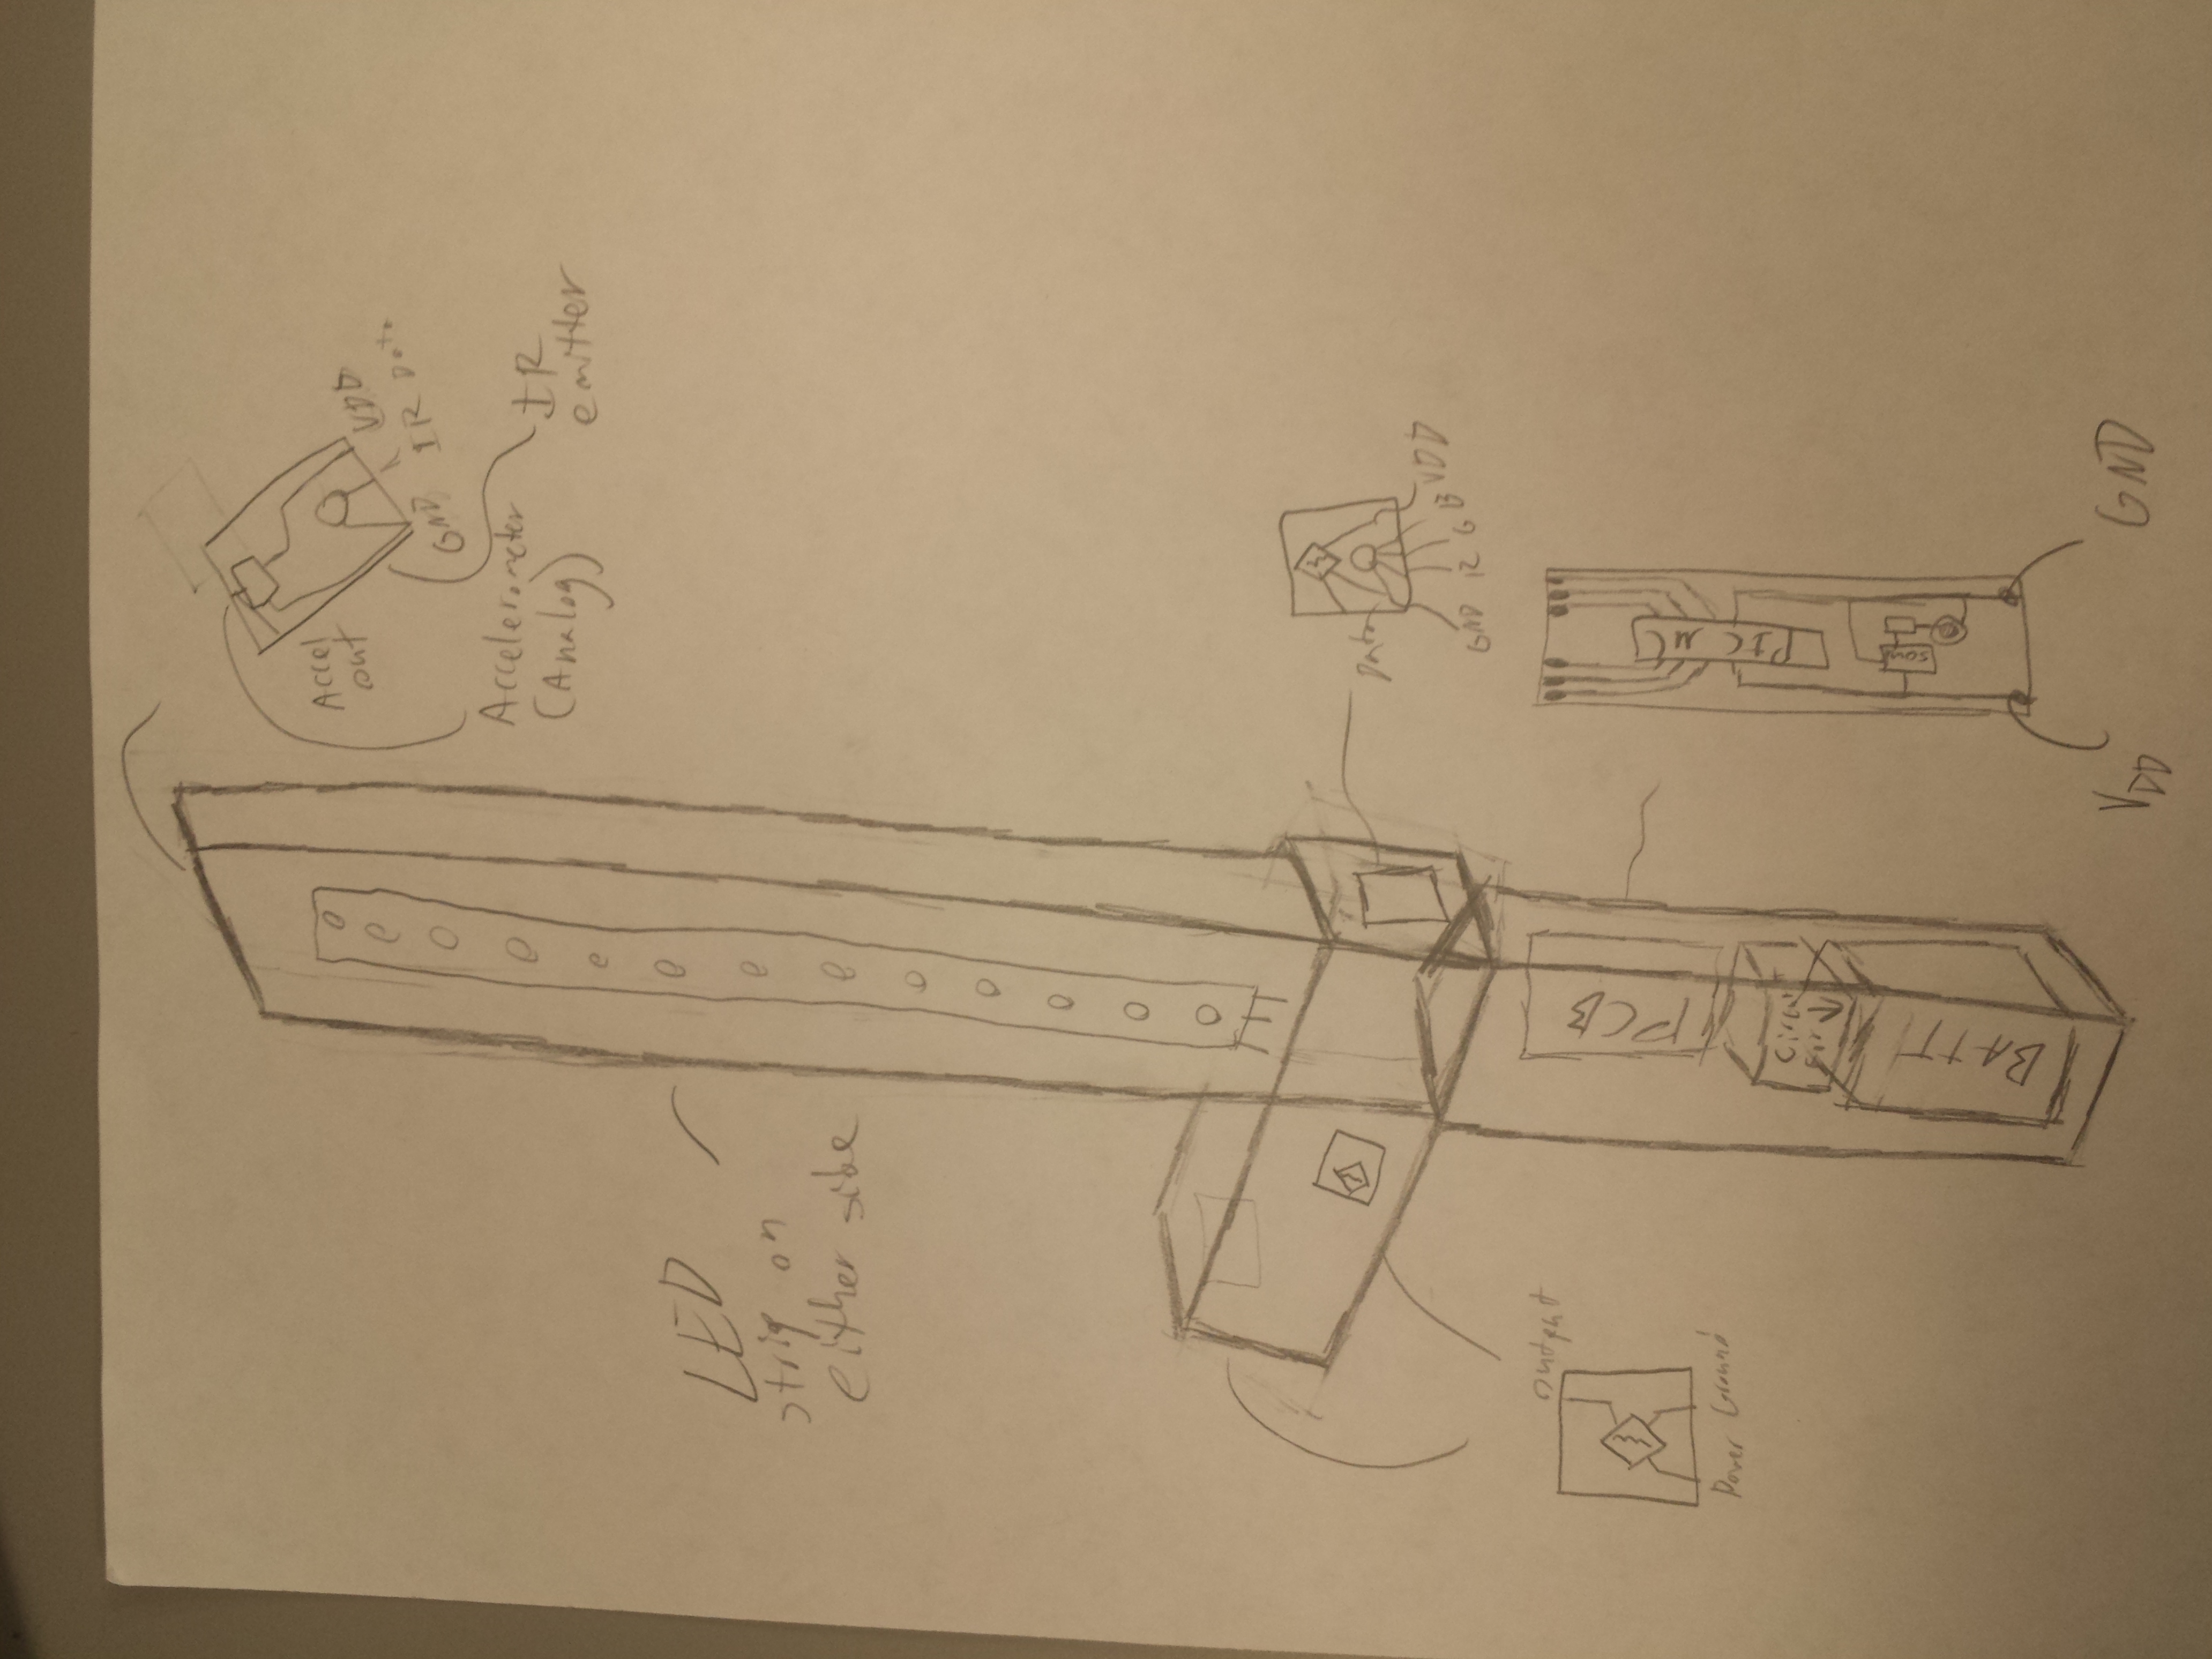 Accel
out
VDD
IR Data
GND
Accelerometer
(Analog)
IR
emitter
LED
strip on
either side
Data
GND R G B VDD
output
Power Ground
PCB
BATT
PIC M
VDD
GND